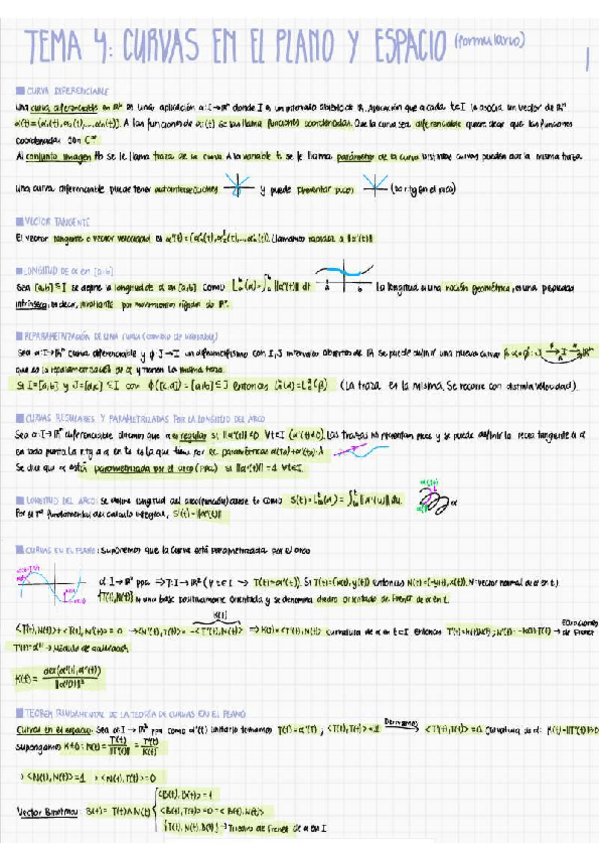 TEMA 4: CURVAS EN EL PLANO Y ESPACIO (formulario)
1
CURVA DIFERENCIABLE
Una curva diferenciable en ℝⁿ es una aplicación α: I→ℝⁿ donde I es un intervalo abierto de ℝ. Aplicación que a cada t∈I la asocia un vector de ℝⁿ.
α(t)=(α₁(t), α₂(t),...,αₙ(t)). A las funciones de αᵢ(t) se las llama funciones coordenadas. Que la curva sea diferenciable quiere decir que las funciones
coordenadas son C∞
Al conjunto imagen se le llama traza de la curva. A la variable t se le llama parámetro de la curva. Distintas curvas pueden dar la misma traza.
Una curva diferenciable puede tener autointersecciones y puede presentar picos (no rtg en el pico)
VECTOR TANGENTE
El vector tangente o vector velocidad es α'(t) = (α₁'(t), α₂'(t),..., αₙ'(t)). Llamamos rapidez a ||α'(t)||
LONGITUD DE α EN [a,b]
Sea [a,b] ⊆ I se define la longitud de α en [a,b] como Lₐᵇ(α)=∫ₐᵇ ||α'(t)|| dt
a b
la longitud es una noción geométrica, es una propiedad
intrínseca, es decir, invariante por movimientos rígidos de ℝⁿ.
REPARAMETRIZACIÓN DE UNA CURVA (cambio de variable)
Sea α: I→ℝⁿ curva diferenciable y ϕ: J→I un difeomorfismo con I, J intervalos abiertos de ℝ. Se puede definir una nueva curva
que es la reparametrización de α y tienen la misma traza.
Si I=[a,b] y J=[c,d] con ϕ([c,d]) = [a,b] ⊆ I entonces (La traza es la misma. Se recorre con distinta velocidad).
CURVAS REGULARES Y PARAMETRIZADAS POR LA LONGITUD DEL ARCO
Sea α: I→ℝⁿ diferenciable diremos que α es regular si ||α'(t)||≠0 ∀t∈I (α'(t)≠0). Las trazas no presentan picos y se puede definir la recta tangente a α
en todo punto.
Se dice que α está parametrizada por el arco (ppa) si ||α'(t)|| = 1 ∀t∈I.
LONGITUD DEL ARCO: se define longitud del arco desde t₀ como S(t)=
Por el Tª fundamental del cálculo integral, S'(t)=||α'(t)||
CURVAS EN EL PLANO: Suponemos que la curva está parametrizada por el arco
α: I→ℝ² ppa. ⇒ T: I→ℝ² (∀t∈I → T(t)=α'(t)). Si T(t)=(x(t), y(t)) entonces N(t)=(-y(t), x(t)). N: vector normal de α en t.
{T(t), N(t)} es una base positivamente orientada y se denomina diedro orientado de Frenet de α en t.
K(t)
Ecuaciones
curvatura de α en t∈I entonces T'(t)=K(t)N(t); N'(t)=-K(t)T(t) → de Frenet
K(t) = det(α'(t), α''(t)) / ||α'(t)||³
TEOREMA FUNDAMENTAL DE LA TEORÍA DE CURVAS EN EL PLANO
Curvas en el espacio: Sea α: I→ℝ³ ppa como α'(t) unitario tomamos T(t)=α'(t); <T(t), T(t)>=1 Derivamos <T'(t), T(t)>=0. Curvatura de α: K(t)=||T'(t)||>0
supongamos K≠0: N(t)= T'(t)/||T'(t)|| = T'(t)/K(t)
> <N(t), N(t)>=1 > <N(t), T(t)>=0
<B(t), B(t)>=1
Vector Binormal: B(t)= T(t)∧N(t) <B(t), T(t)>=0=<B(t), N(t)>
{T(t), N(t), B(t)} → Triedro de Frenet de α en I